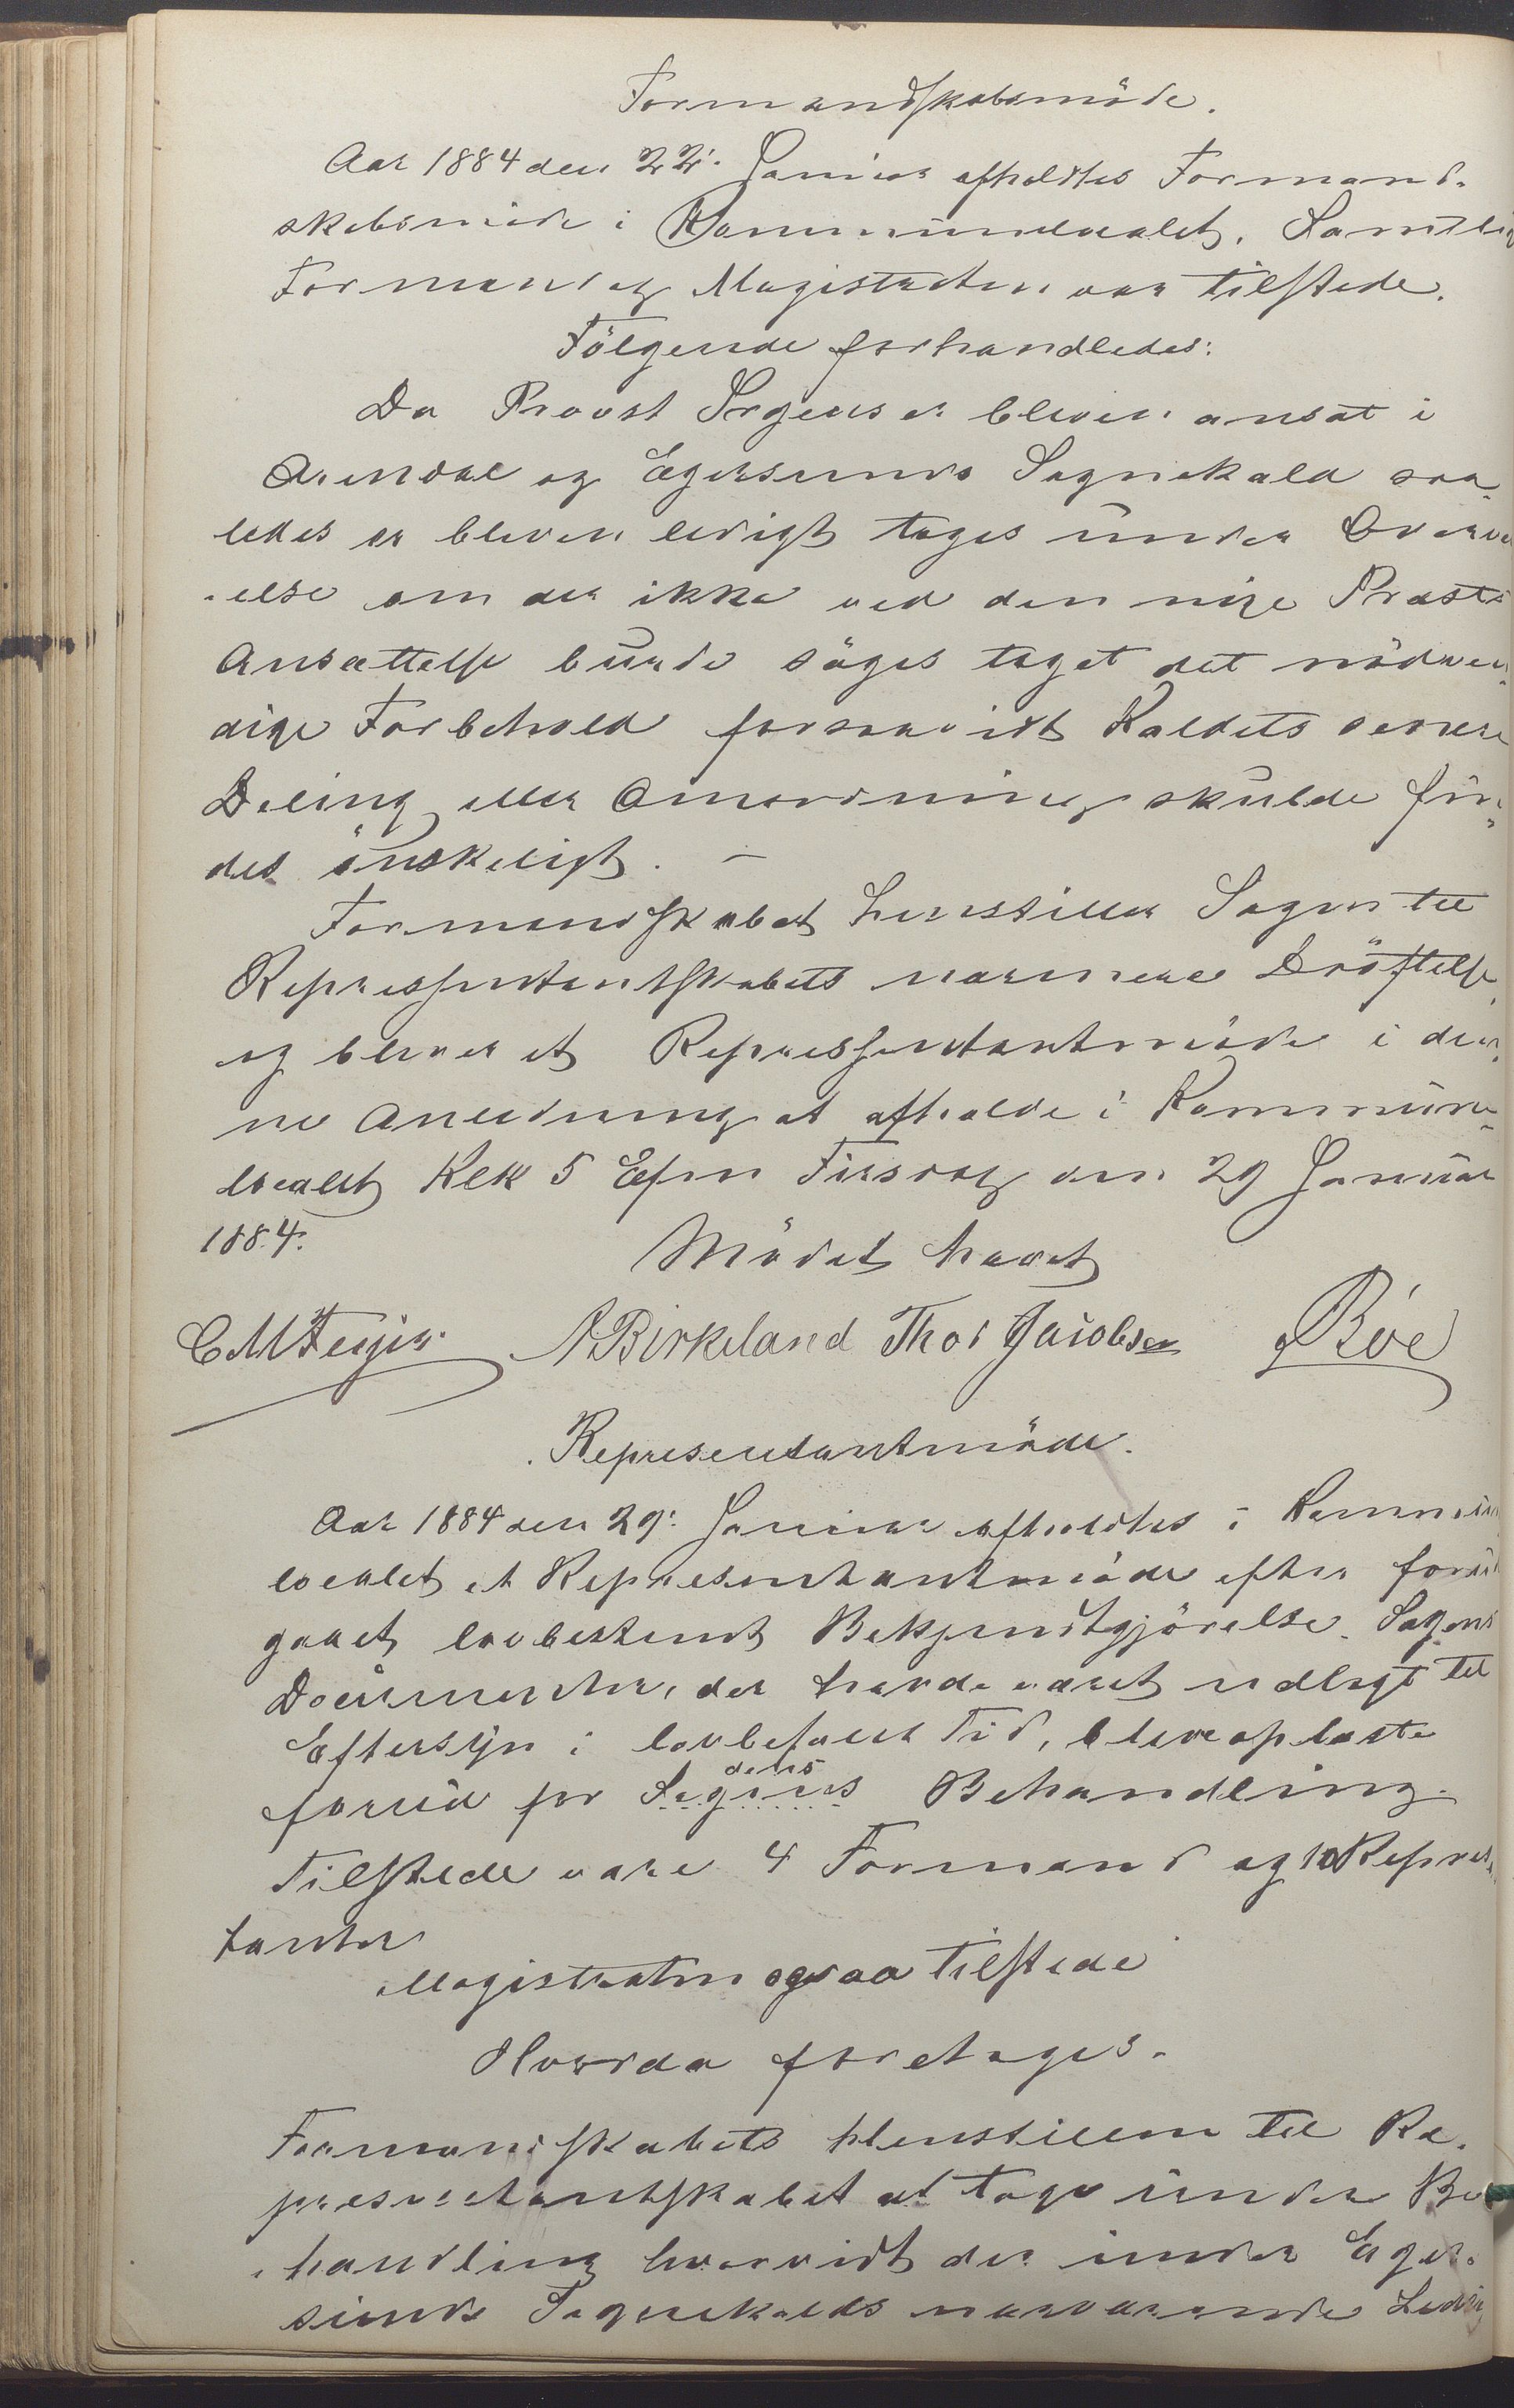 Formandskabsmöde.
Aar 1884 den 22'. Januar afholdtes Formand-
skabsmöde i Kommunelocalet. Samtlig
Formænd og Magistraten var tilstede.
Fölgende forhandledes:
Da Provst Irgens er bleven ansat i
Arendal og Egersunds Sognekald saa-
ledes er bleven ledigt tages under Overvei
-else om der ikke ved den nye Præsts
Ansættelse burde söges taget det nödven-
dige Forbehold forsaavidt Kaldets senere
Deling eller Omordning skulde fin-
des önskeligt. –
Formandskabet henstiller Sagen til
Repressentantskabets nærmere Dröftelse
og bliver et Repressentantmöde i den-
ne Anledning at afholde i Kommune-
localet Klk 5 Efm Tirsdag den 29 Januar
1884.
Mödet hævet
CMFeyer A Birkeland Thor Jacobsen Böe
Representantmöde.
Aar 1884 den 29'. Januar afholdtes i Kommun
localet et Representantmöde efter forud
gaaet lovbestemt Bekjendtgjörelse. Sagens
Documenter, der havde været udlagt til
Eftersyn i lovbefalet Tid, bleve oplæste
dens
forud for Sagens Behandling.
Tilstede vare 4 Formænd og 10 Represen
tanter
Magistraten ogsaa tilstede
Hvorda foretages.
Formandskabets Henstillen til Re-
presentantskabet at tage under Be
-handling hvorvidt der under Eger-
sunds Sognekalds nærværende Ledig